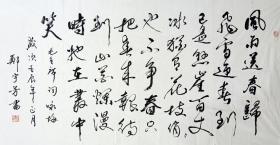 風雨送春歸
飛雪迎春到
已是懸崖百丈
冰猶有花枝俏
也不争春只
把春来報待
到山花爛漫
時她在叢中
笑 毛主席詞詠梅
歲次壬辰年正月